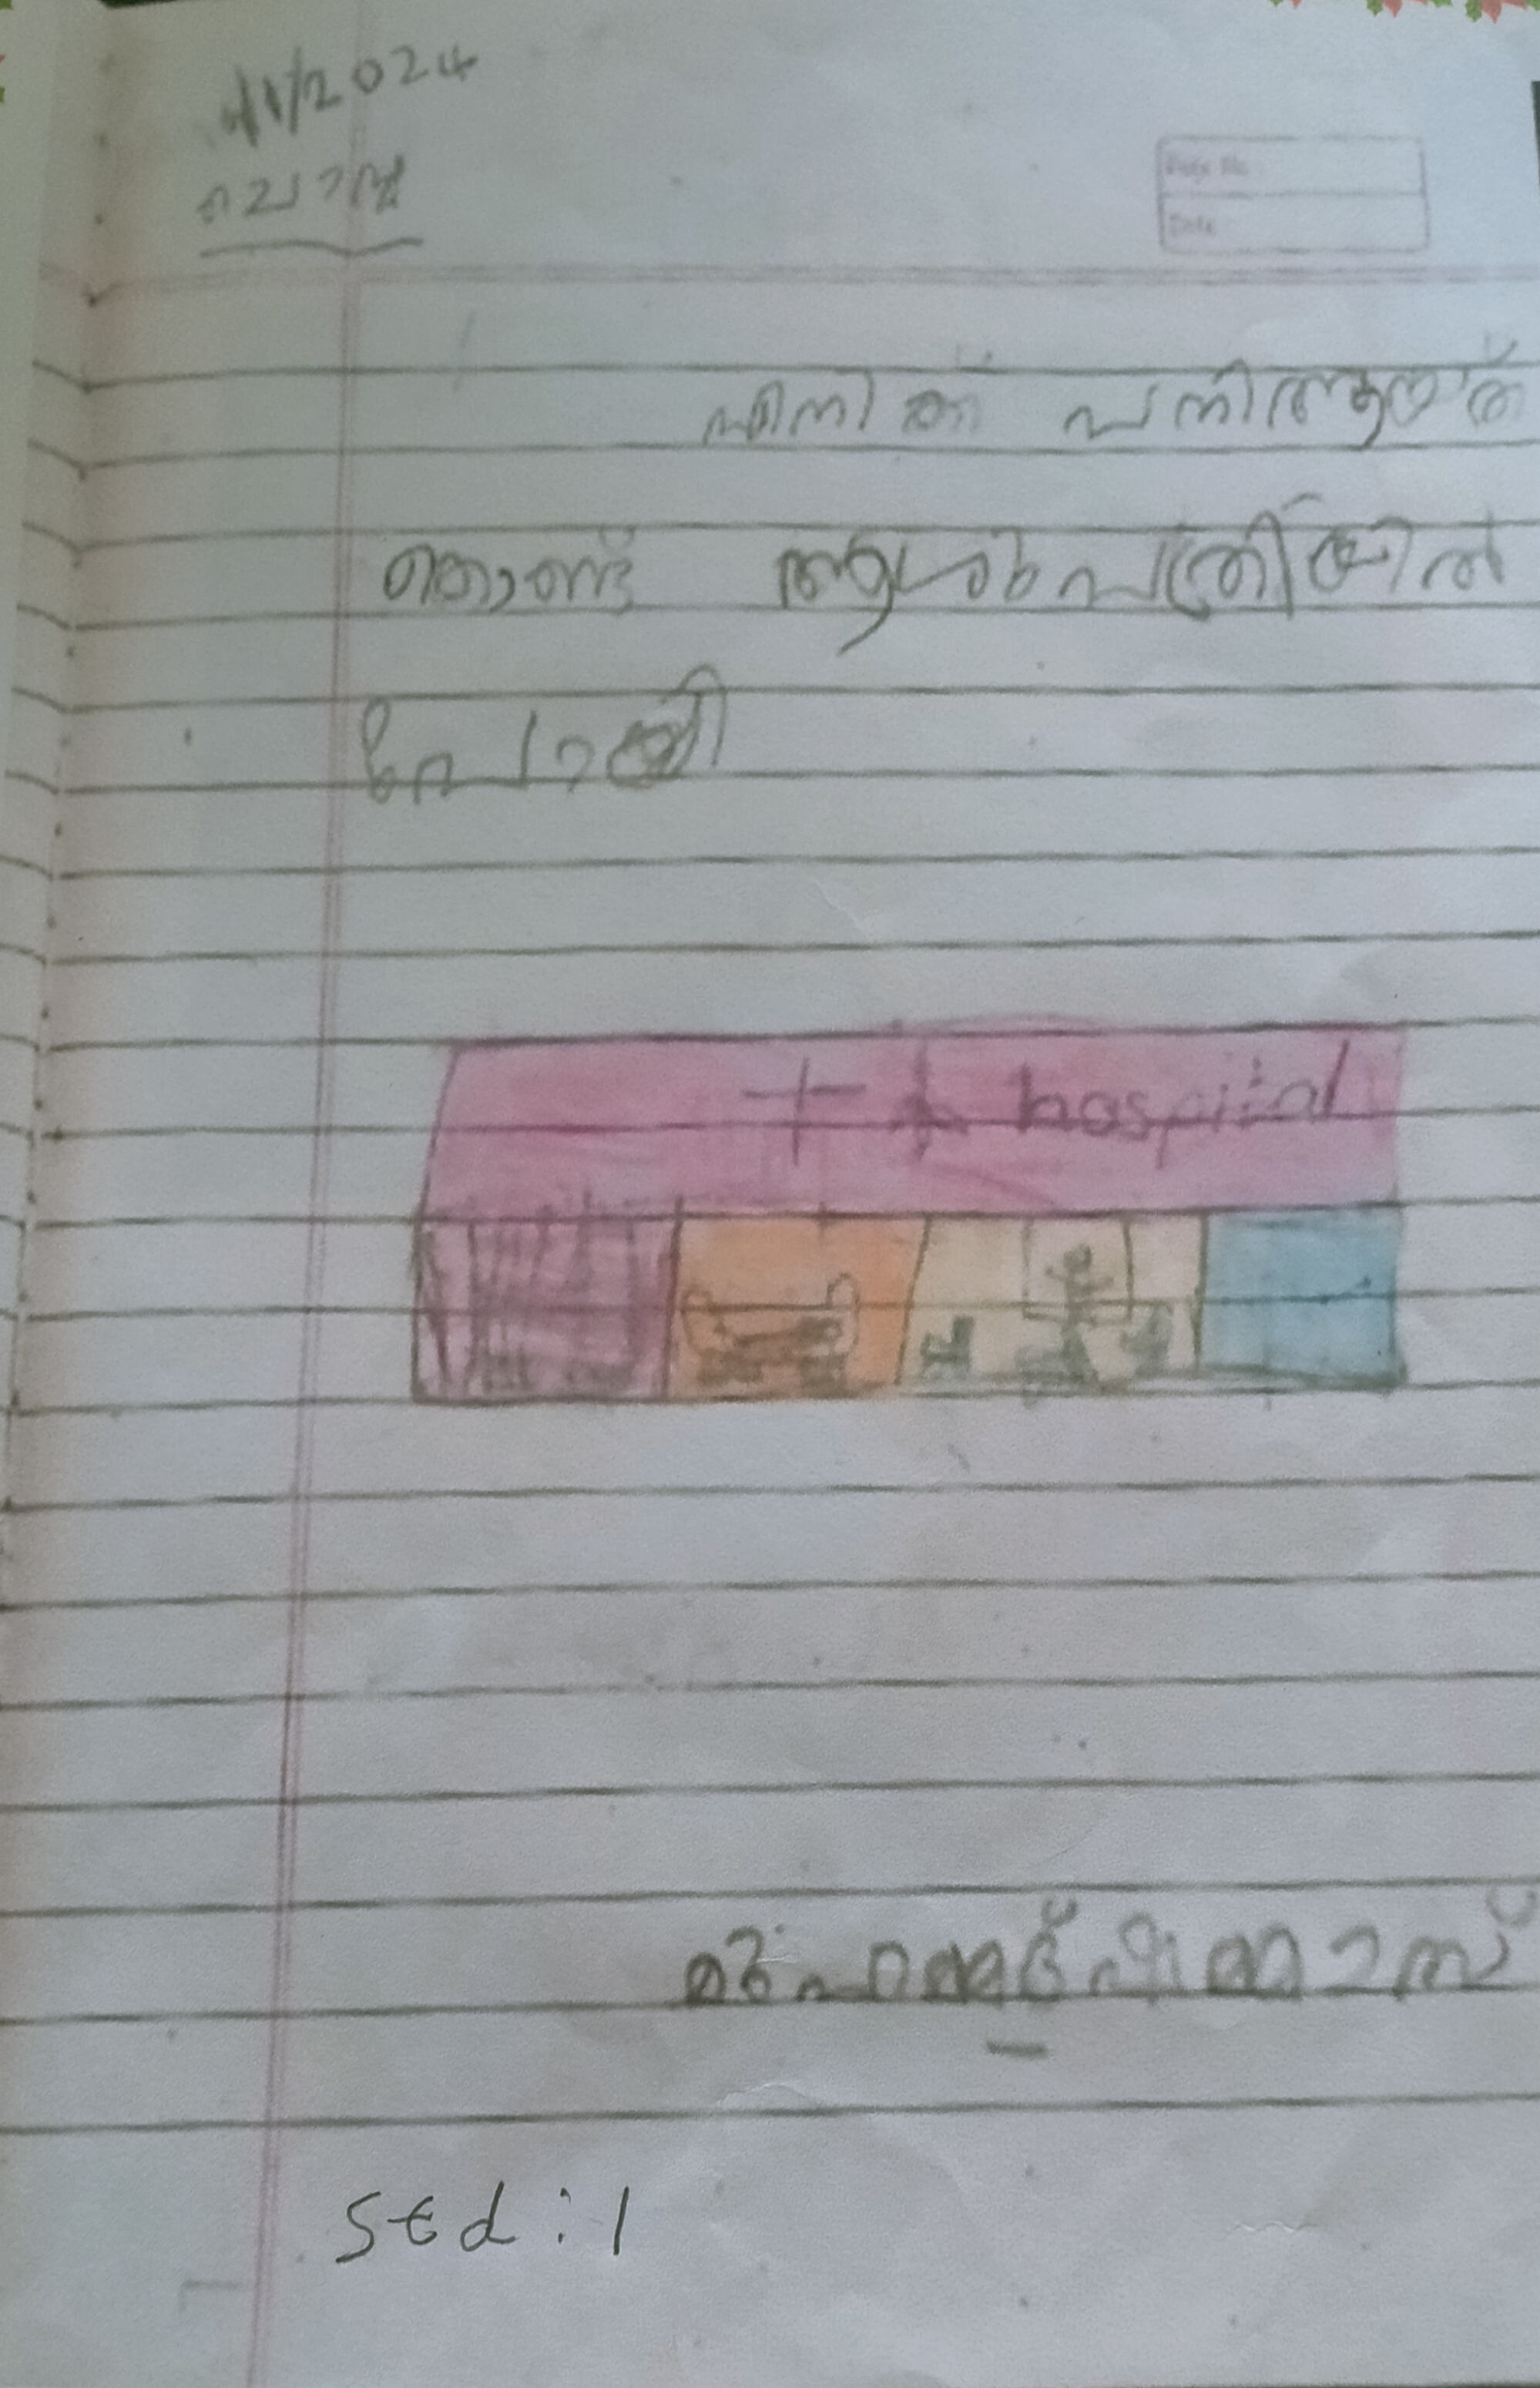 4/1/2024
വ്യാഴം
Page No:
Date:
എനിക്ക് പനിആയത്
കൊണ്ട് ആശുപത്രിയിൽ
പോയി
+ hospital
Std : 1